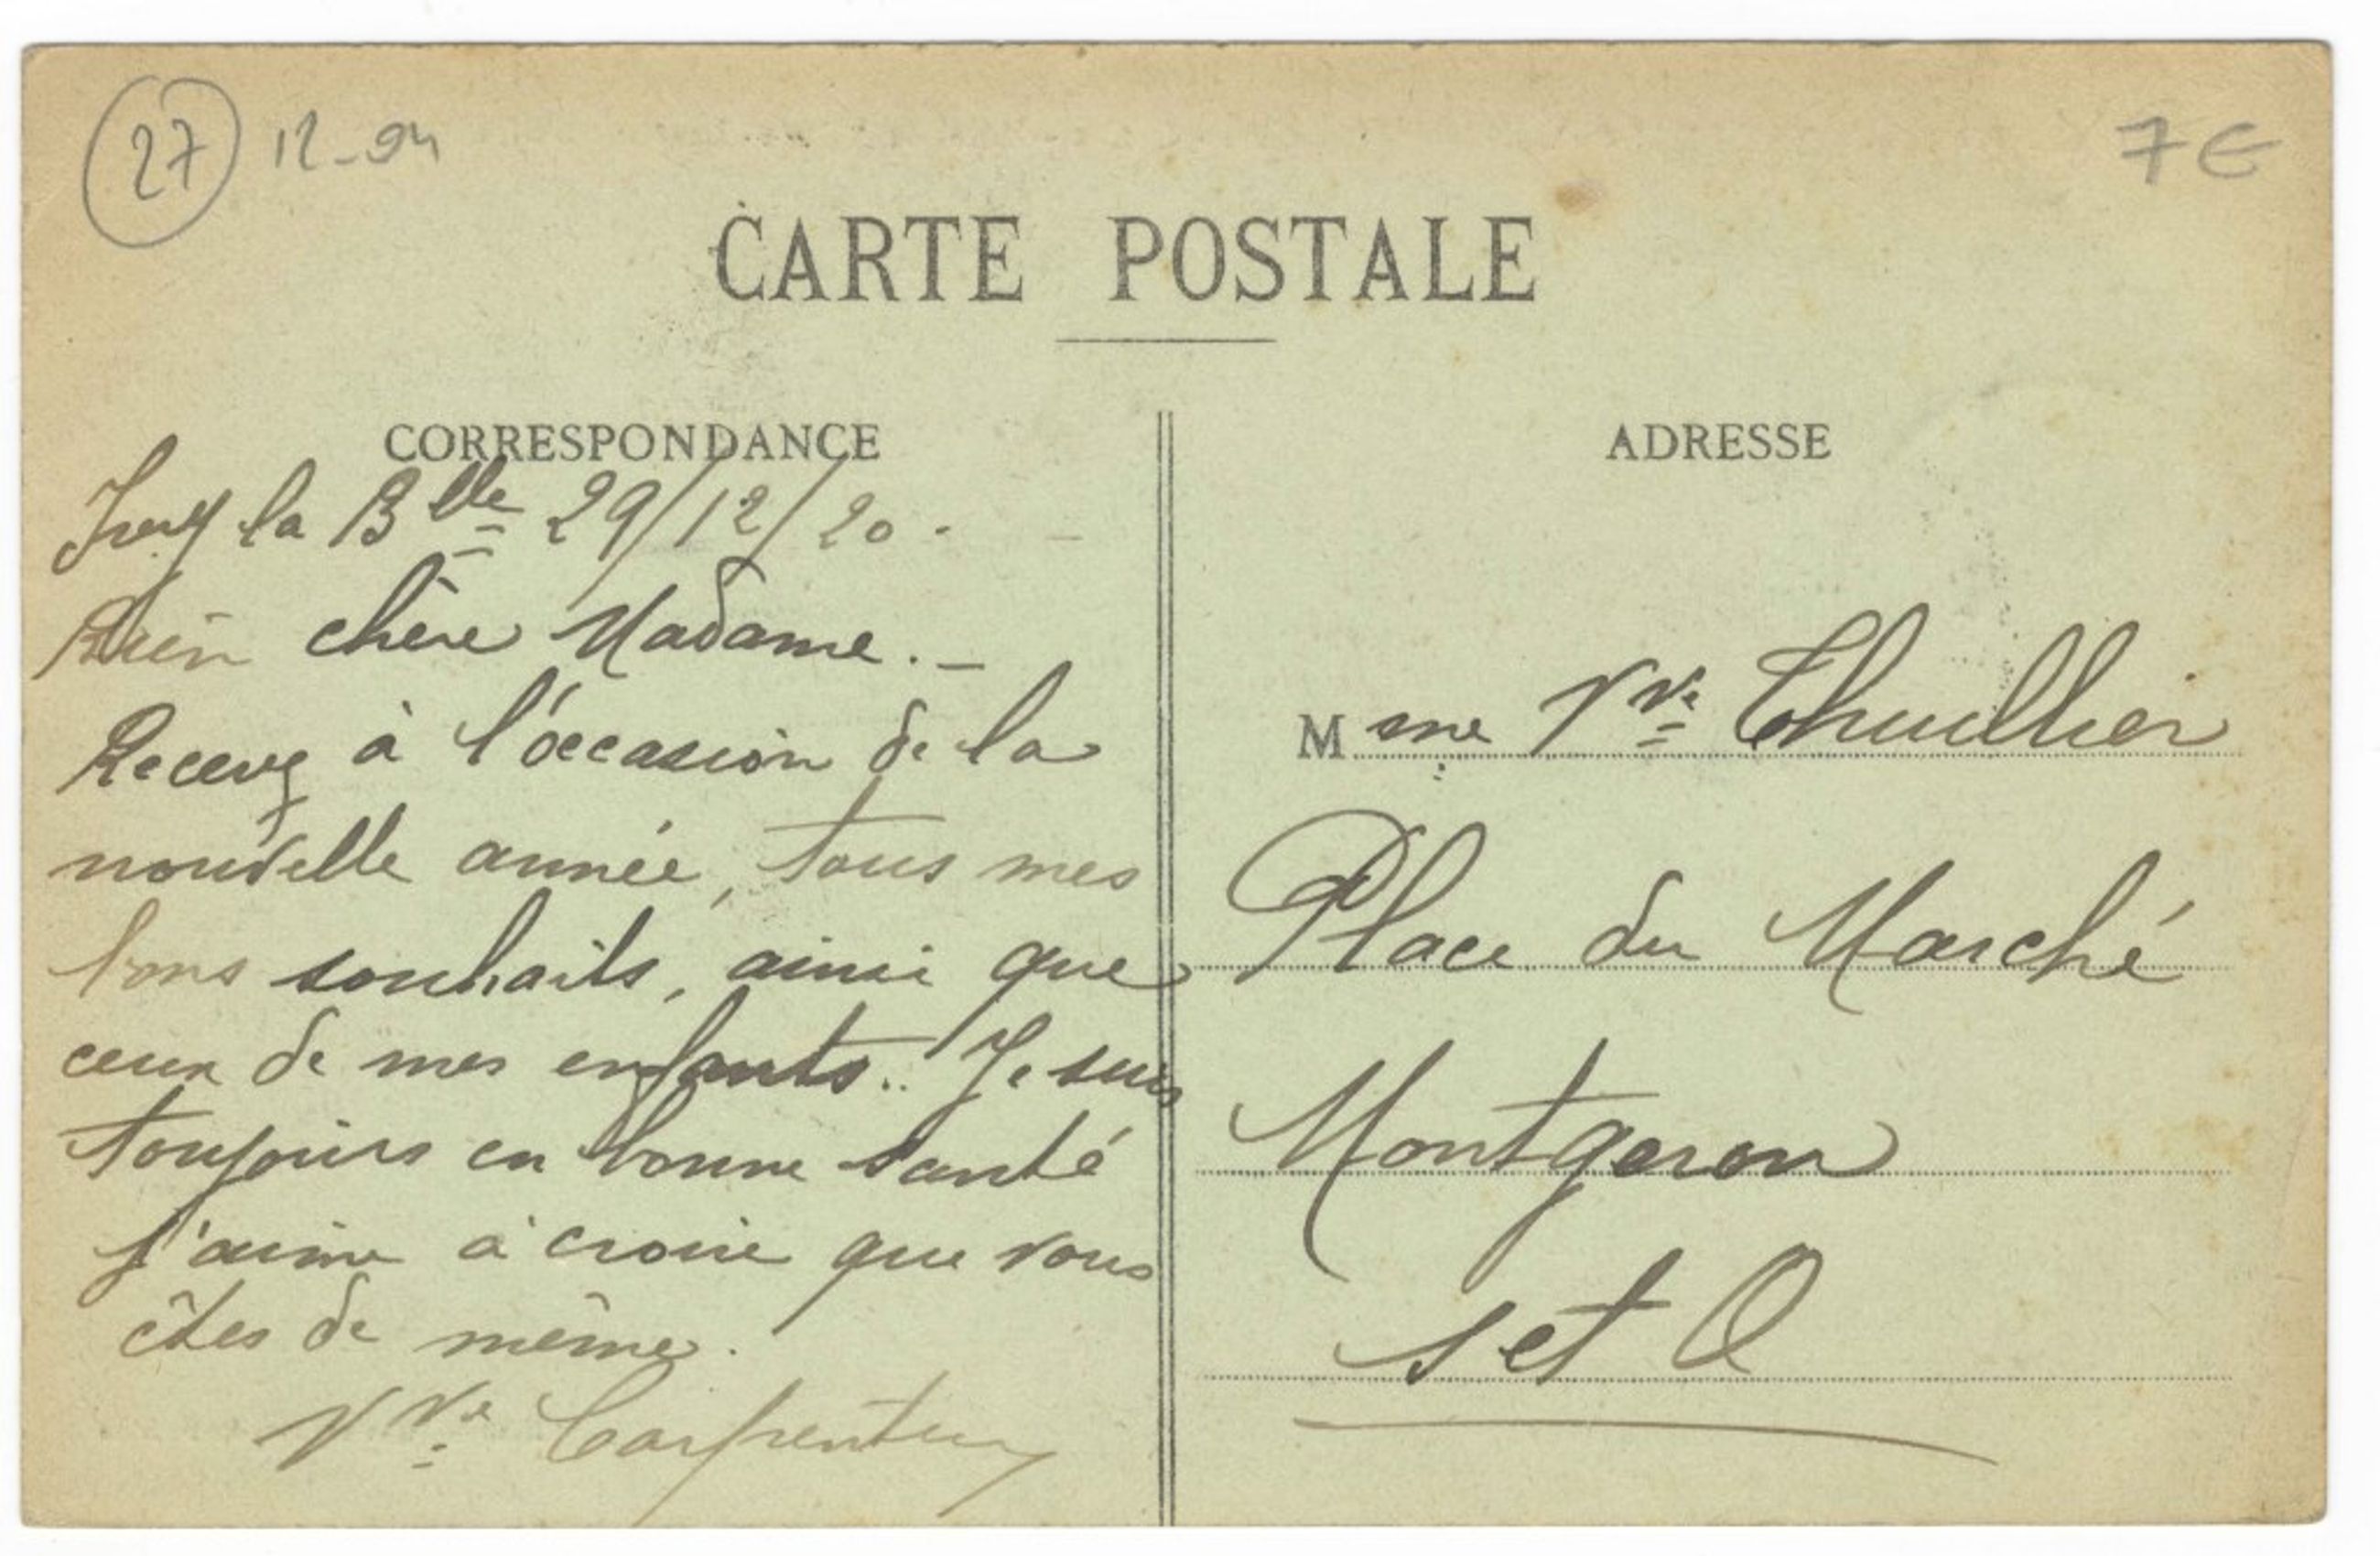 27 12-94
7€
CARTE POSTALE
CORRESPONDANCE
Ivry la Blle 29/12/20.
Bien chère Madame. -
Recevez à l'occasion de la
nouvelle année, tous mes
bons souhaits, ainsi que
ceux de mes enfants.. Je suis
toujours en bonne santé
j'aime à croire que vous
êtes de même.
Vve Carpentier
ADRESSE
Mme Vve Thuillier
Place du Marché
Montgeron
S et O